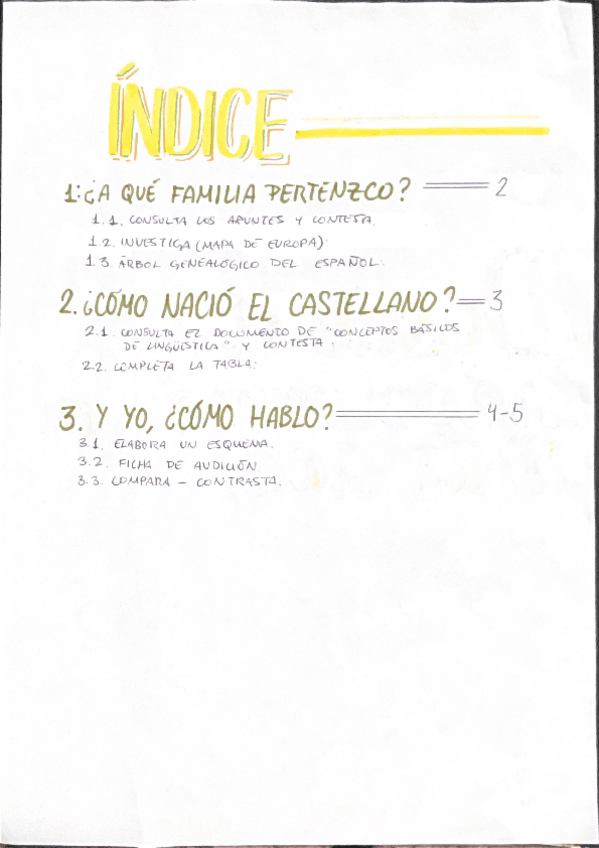 ÍNDICE
1: ¿A QUÉ FAMILIA PERTENZCO? 2
1.1. CONSULTA LOS APUNTES Y CONTESTA.
1.2. INVESTIGA (MAPA DE EUROPA).
1.3. ÁRBOL GENEALÓGICO DEL ESPAÑOL.
2. ¿CÓMO NACIÓ EL CASTELLANO? 3
2.1. CONSULTA EL DOCUMENTO DE "CONCEPTOS BÁSICOS
DE LINGÜÍSTICA" Y CONTESTA.
2.2. COMPLETA LA TABLA.
3. Y YO, ¿CÓMO HABLO? 4-5
3.1. ELABORA UN ESQUEMA.
3.2. FICHA DE AUDICIÓN.
3.3. COMPARA - CONTRASTA.